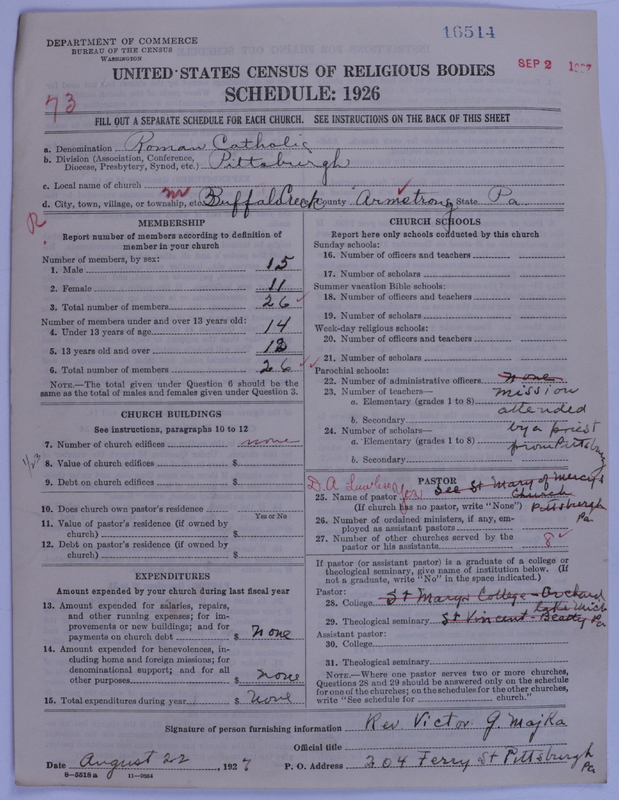 16514
DEPARTMENT OF COMMERCE
BUREAU OF THE CENSUS
WASHINGTON
SEP 2 1927
UNITED STATES CENSUS OF RELIGIOUS BODIES
SCHEDULE: 1926
73
FILL OUT A SEPARATE SCHEDULE FOR EACH CHURCH. SEE INSTRUCTIONS ON THE BACK OF THIS SHEET
a. Denomination Roman Catholic
b. Division (Association, Conference, Diocese, Presbytery, Synod, etc.) Pittsburgh
c. Local name of church
d. City, town, village, or township, etc. Buffalo Creek County Armstrong State Pa.
R
MEMBERSHIP
Report number of members according to definition of
member in your church
Number of members, by sex:
1. Male 15
2. Female 11
3. Total number of members 26
Number of members under and over 13 years old:
4. Under 13 years of age 14
5. 13 years old and over 12
6. Total number of members 26
NOTE.—The total given under Question 6 should be the
same as the total of males and females given under Question 3.
CHURCH BUILDINGS
See instructions, paragraphs 10 to 12
7. Number of church edifices none
8. Value of church edifices $
9. Debt on church edifices $
10. Does church own pastor's residence
Yes or No
11. Value of pastor's residence (if owned by
church) $
12. Debt on pastor's residence (if owned by
church) $
EXPENDITURES
Amount expended by your church during last fiscal year
13. Amount expended for salaries, repairs,
and other running expenses; for im-
provements or new buildings; and for
payments on church debt $ none
14. Amount expended for benevolences, in-
cluding home and foreign missions; for
denominational support; and for all
other purposes $ none
15. Total expenditures during year $ none
CHURCH SCHOOLS
Report here only schools conducted by this church
Sunday schools:
16. Number of officers and teachers
17. Number of scholars
Summer vacation Bible schools:
18. Number of officers and teachers
19. Number of scholars
Week-day religious schools:
20. Number of officers and teachers
21. Number of scholars
Parochial schools:
22. Number of administrative officers none
23. Number of teachers— mission
a. Elementary (grades 1 to 8) attended
b. Secondary
24. Number of scholars— by a priest
a. Elementary (grades 1 to 8) from Pittsburg
b. Secondary
PASTOR
25. Name of pastor See St Mary of Mercy's Church
(If church has no pastor, write "None") Pittsburgh Pa.
26. Number of ordained ministers, if any, em-
ployed as assistant pastors
27. Number of other churches served by the
pastor or his assistants 8
If pastor (or assistant pastor) is a graduate of a college or
theological seminary, give name of institution below. (If
not a graduate, write "No" in the space indicated.)
Pastor:
28. College St Marys College - Orchard Lake Mich
29. Theological seminary St Vincent - Beatty Pa
Assistant pastor:
30. College
31. Theological seminary
NOTE.—Where one pastor serves two or more churches,
Questions 28 and 29 should be answered only on the schedule
for one of the churches; on the schedules for the other churches,
write "See schedule for church."
Signature of person furnishing information Rev Victor G. Majka
Official title
Date August 22, 1927 P. O. Address 304 Ferry St Pittsburgh Pa
8-5518a 11-9554